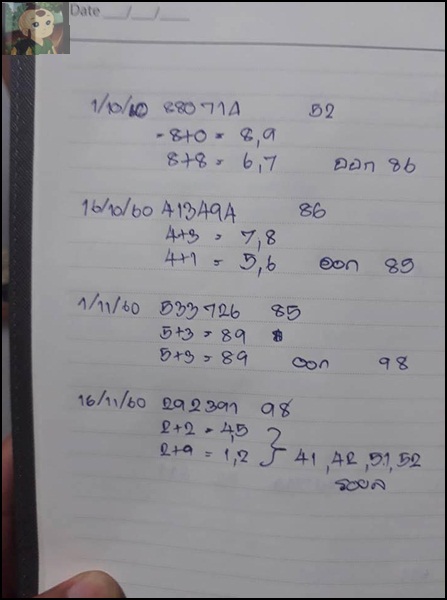 Date __/__/__
1/10/60 880714 52
- 8+0 = 8,9
8+8 = 6,7 ออก 86
16/10/60 413494 86
4+3 = 7,8
4+1 = 5,6 ออก 85
1/11/60 533726 85
5+3 = 89
5+3 = 89 ออก 98
16/11/60 292391 98
2+2 = 4,5
2+9 = 1,2 } 41,42,51,52
รอผล